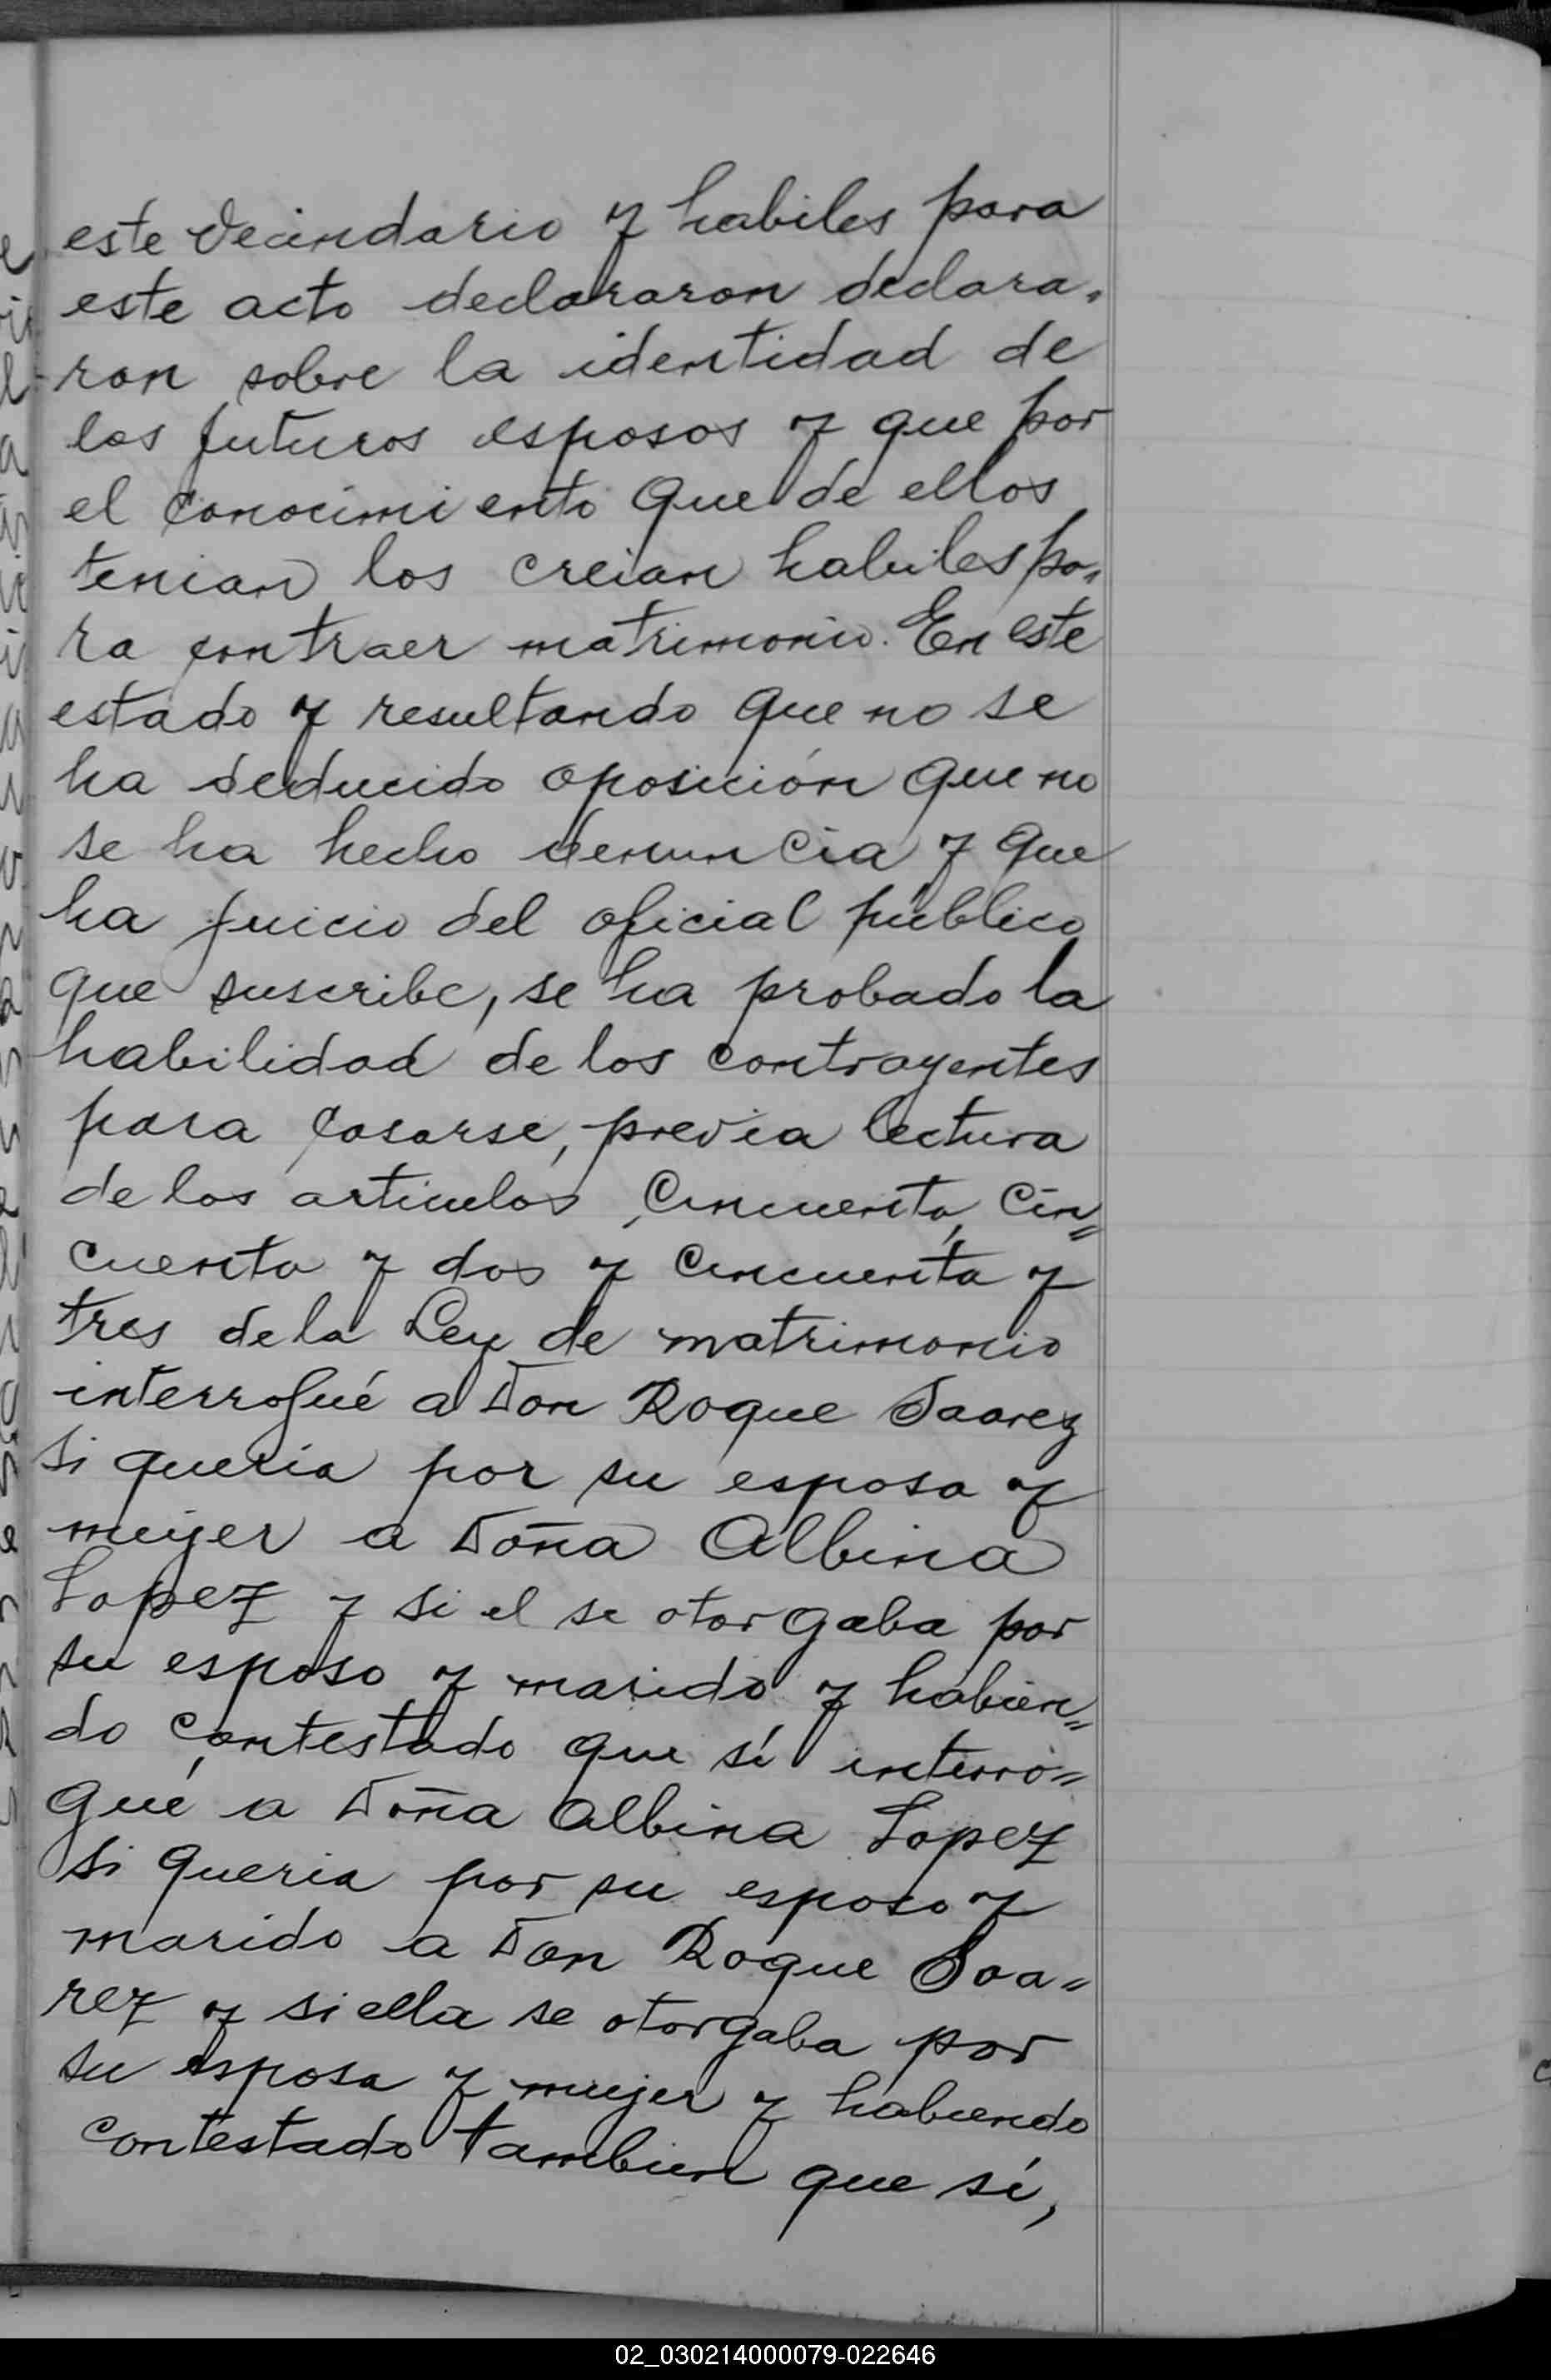 este vecindario y habiles para
este acto declararon declara-
ron sobre la identidad de
los futuros esposos y que por
el conocimiento que de ellos
tenian los creian habiles pa-
ra contraer matrimonio. En este
estado y resultando que no se
ha deducido oposición que no
se ha hecho denuncia y que
ha juicio del oficial público
que suscribe, se ha probado la
habilidad de los contrayentes
para casarse, previa lectura
de los articulos, Cincuenta, Cin=
cuenta y dos y Cincuenta y
tres de la Ley de matrimonio
interrogué a Don Roque Saarez
si queria por su esposa y
mujer a Doña Albina
Lopez y si el se otorgaba por
su esposo y marido y habien=
do contestado que sí interro=
gué a Doña Albina Lopez
si queria por su esposo y
marido a Don Roque Saa=
rez y si ella se otorgaba por
su esposa y mujer y habiendo
contestado tambien que sí,
02_030214000079-022646